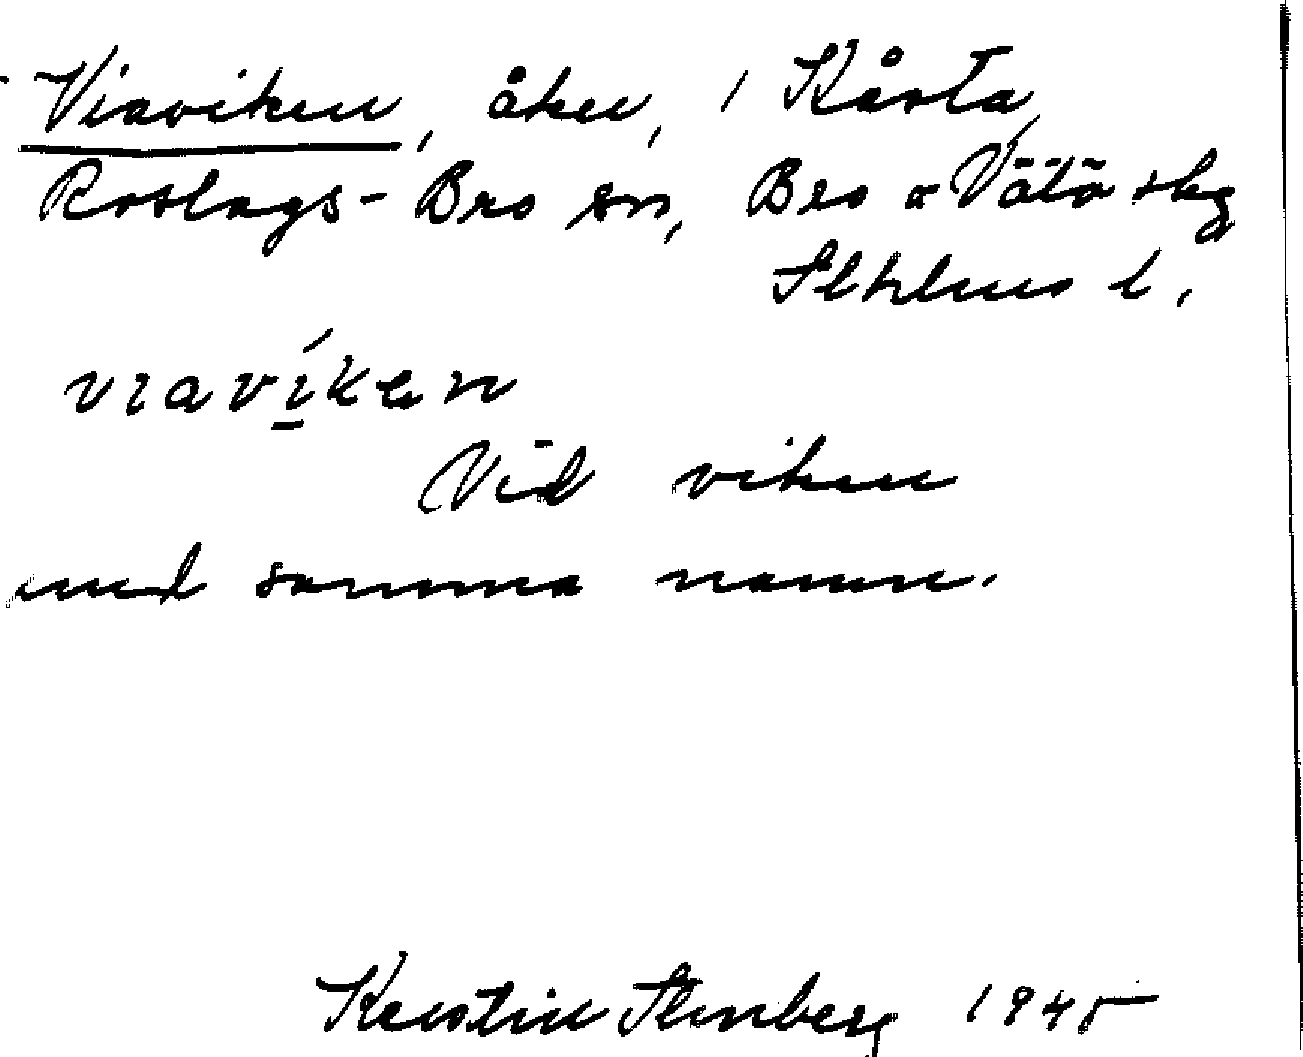 Viaviken, åker, i Kårsta,
Roslags-Bro sn, Bro o Vätö skg
Sthlms l.
vıavíken
Vid viken
med samma namn.
Kerstin Stenberg 1945